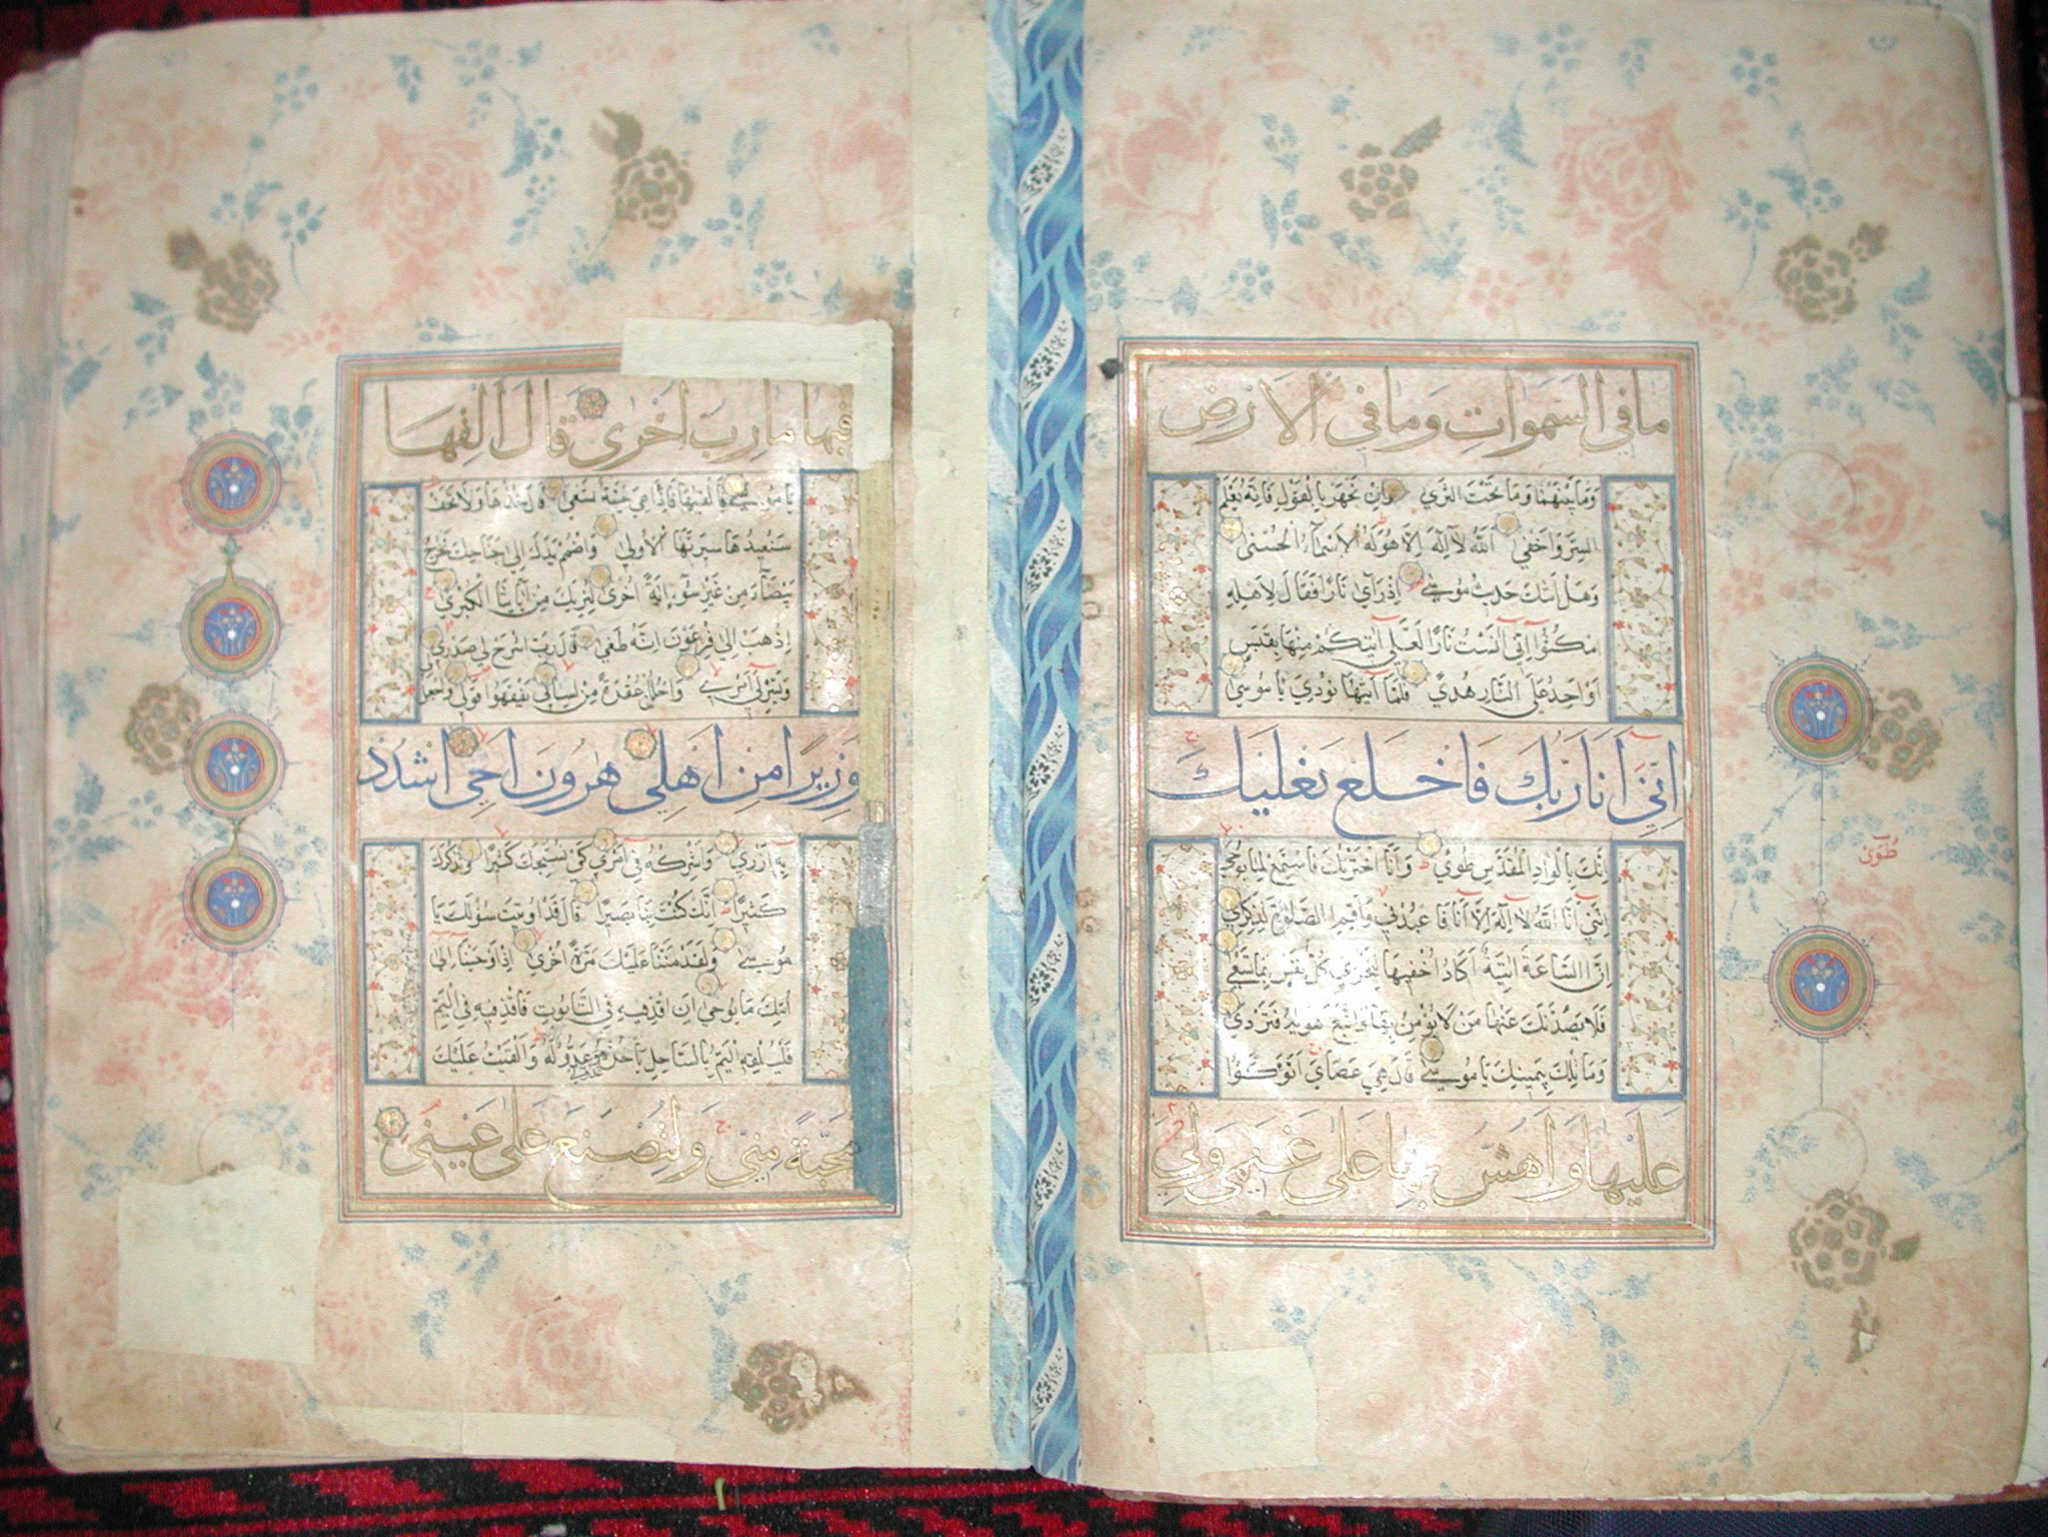 ما في السموات وما في الارض
وما بينهما وما تحت الثرى وان تجهر بالقول فانه يعلم
السر واخفى الله لا اله الا هو له الاسماء الحسنى
وهل اتىك حديث موسى اذ رآى نارا فقال لاهله
امكثوا اني آنست نارا لعلي آتيكم منها بقبس
او اجد على النار هدى فلما آتيها نودي يا موسى
اني انا ربك فاخلع نعليك
انك بالواد المقدس طوى وانا اخترتك فاستمع لما يوحى
انني انا الله لا اله الا انا فاعبدني واقم الصلوة لذكري
ان الساعة اتية اكاد اخفيها لتجزى كل نفس بما تسعى
فلا يصدنك عنها من لا يؤمن بها واتبع هويه فتردى
وما تلك بيمينك يا موسى قال هي عصاي اتوكؤا
عليها واهش بها على غنمي ولي
طوى
فيها مارب اخرى قال القها
يا موسى فالقيها فاذا هي حية تسعى قال خذها ولا تخف
سنعيدها سيرتها الاولى واضمم يدك الى جناحك تخرج
بيضاء من غير سوء اية اخرى لنريك من آياتنا الكبرى
اذهب الى فرعون انه طغى قال رب اشرح لي صدري
ويسر لي امري واحلل عقدة من لساني يفقهوا قولي واجعل
وزيرا من اهلي هرون اخي اشدد
به ازري واشركه في امري كي نسبحك كثيرا ونذكرك
كثيرا انك كنت بنا بصيرا قال قد اوتيت سؤلك يا
موسى ولقد مننا عليك مرة اخرى اذ اوحينا الى
امك ما يوحى ان اقذفيه في التابوت فاقذفيه في اليم
فليلقه اليم بالساحل ياخذه عدو له والقيت عليك
محبة مني ولتصنع على عيني